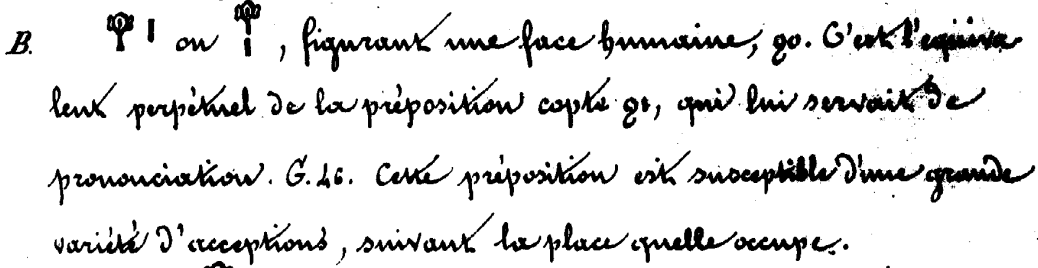 B. 𓁷𓏤 ou 𓁷𓏤, figurant une face humaine, ϩⲟ. C'est l'equiva
lent perpétuel de la préposition copte ϩⲓ, qui lui servait de
prononciation. G. 46. Cette préposition est susceptible d'une grande
variété d'acceptions, suivant la place quelle occupe.